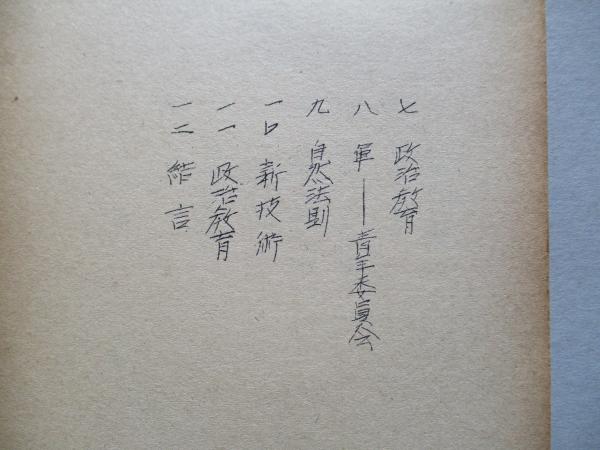 七 政治教育
八 軍―青年委員会
九 自然法則
一〇 新技術
一一 政治教育
一二 結言